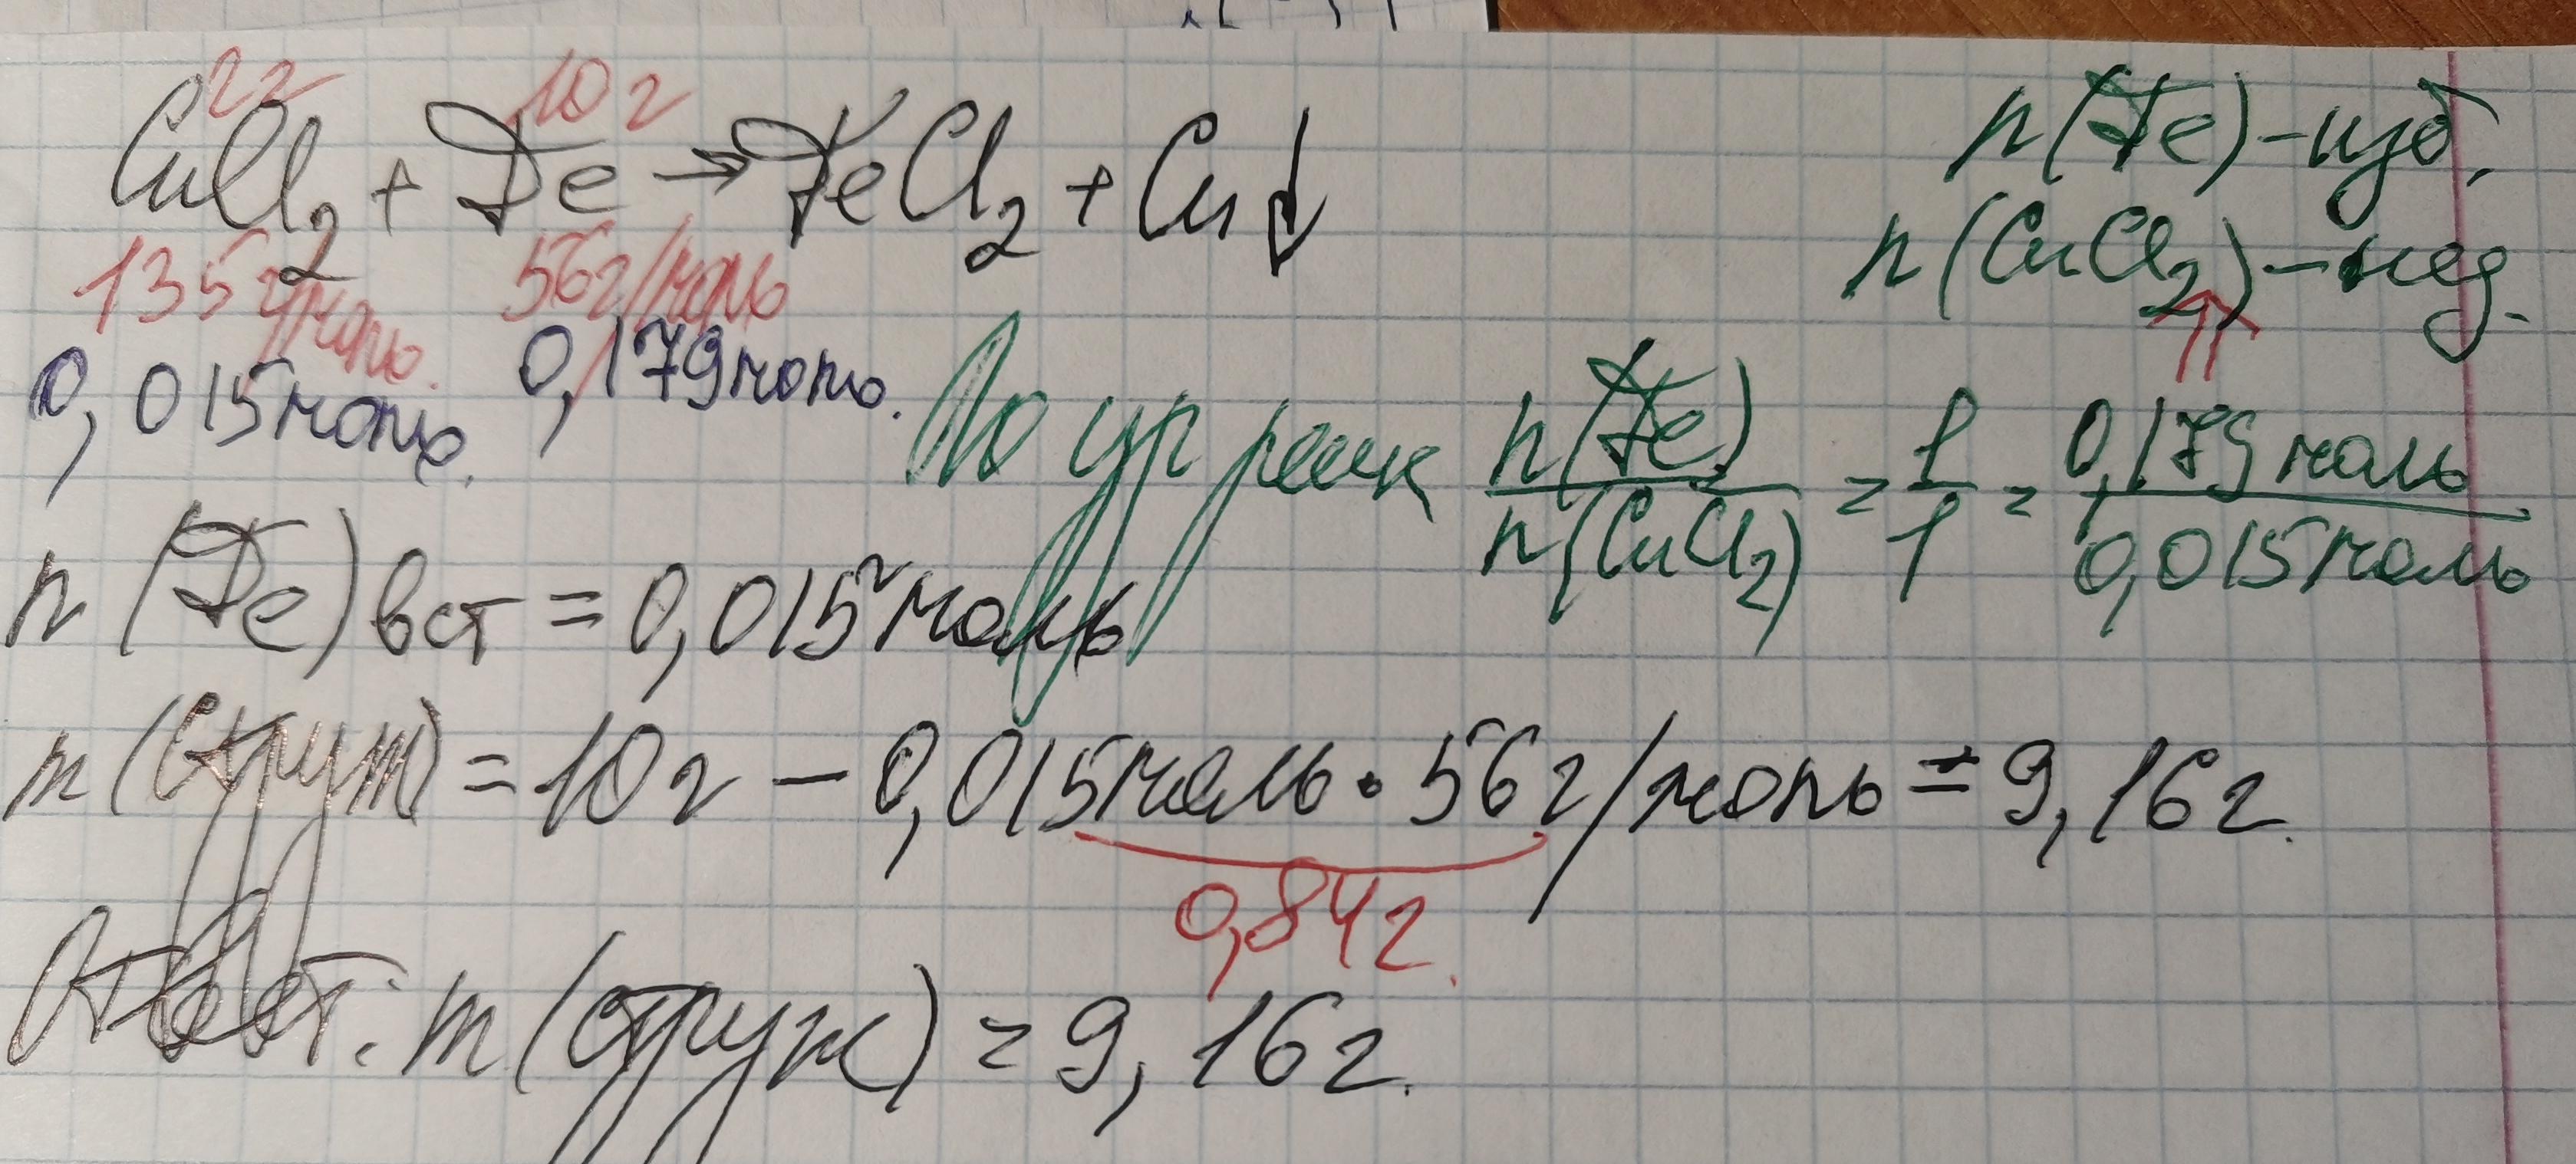 2г 10г
CuCl2 + Fe → FeCl2 + Cu↓
135г/моль. 56г/моль
0,015моль. 0,179моль.
n(Fe) - изб.
n(CuCl2) - нед.
По ур реак n(Fe)/n(CuCl2) = 1/1 = 0,179моль/0,015моль
n(Fe)вст = 0,015моль
m(струж) = 10г - 0,015моль · 56г/моль = 9,16г.
0,84г.
Ответ: m(струж) = 9,16г.